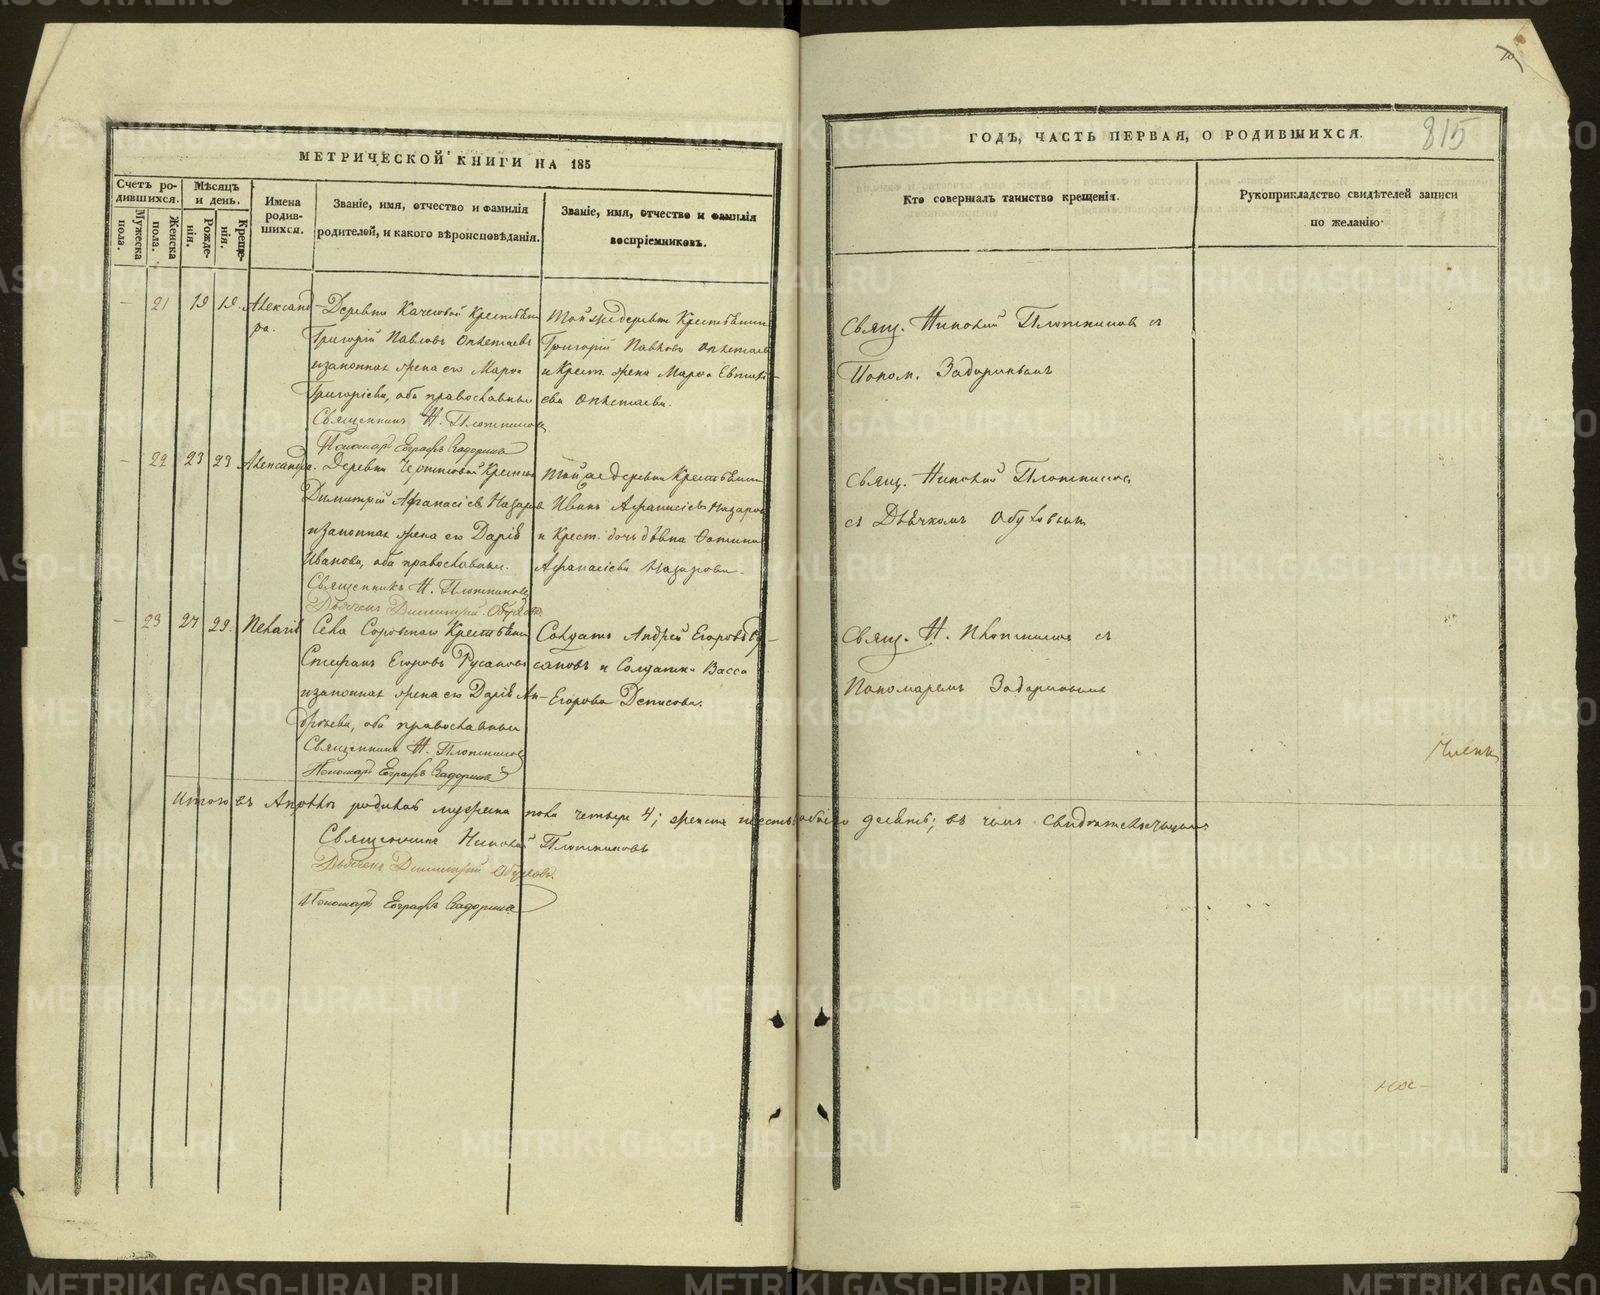 МЕТРИЧЕСКОЙ КНИГИ НА 185
Счетъ ро-
дившихся.
Мужеска
пола.
Женска
пола.
Мѣсяцъ
и день.
Рожде-
нія.
Креще-
нія.
Имена
родив-
шихся.
Званіе, имя, отчество и фамилія
родителей, и какого вѣроисповѣданія.
Званіе, имя, отчество и фамилія
воспріемниковъ.
21 19 19. Александ-
ра.
Деревни Крестьянинъ
Григорій Павловъ
и законная жена его
Григоріева, оба православные
Священникъ Н. Плотниковъ
Пономарь Евграфъ Задоринъ
Той же деревни Крестьянинъ
Григорій Павловъ
и Крест. жена
22 23 23 Александра.
Деревни
Димитрій Афанасіевъ Назаровъ
и законная жена его Дарія
Иванова, оба православные.
Священникъ Н. Плотниковъ
Дьячекъ Димитрій Обуховъ
Той же деревни Крестьянинъ
Иванъ Афанасіевъ Назаровъ
и Крест. дочь дѣвка
Афанасіева Назарова.
23 27 29. Пелагія
Села Крестьянинъ
Стефанъ Егоровъ Русановъ
и законная жена его Дарія Ан-
дреева, оба православные
Священникъ Н. Плотниковъ
Пономарь Евграфъ Задоринъ
Солдатъ Андрей Егоровъ Ру-
сановъ и Солдатка Васса
Егорова Денисова.
Итого въ Апрѣлѣ родилось мужеска пола четыре 4; женска шесть; всего девять; въ чемъ свидѣтельствуемъ
Священникъ Николай Плотниковъ
Дьячекъ Димитрій Обуховъ.
Пономарь Евграфъ Задоринъ
ГОДЪ, ЧАСТЬ ПЕРВАЯ, О РОДИВШИХСЯ.
815
Кто совершалъ таинство крещенія.
Рукоприкладство свидѣтелей записи
по желанію.
Свящ. Николай Плотниковъ съ
Поном. Задоринымъ
Свящ. Николай Плотниковъ
съ Дьячкомъ Обуховымъ
Свящ. Н. Плотниковъ съ
Пономаремъ Задоринымъ
METRIKI.GASO-URAL.RU